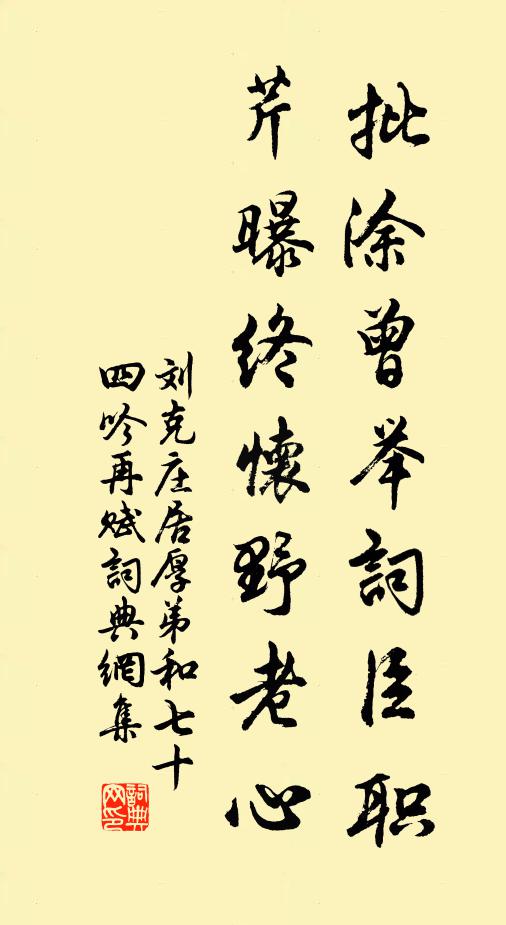 批涂曾举詞臣职
芹曝终懷野老心
刘克庄居厚弟和七十
四吟再赋詞典網集
詞典網印